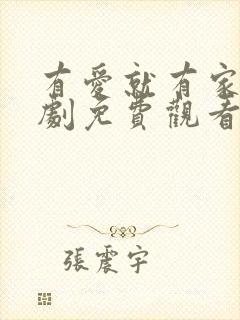 有愛就有家
劇免費觀看
張震宇